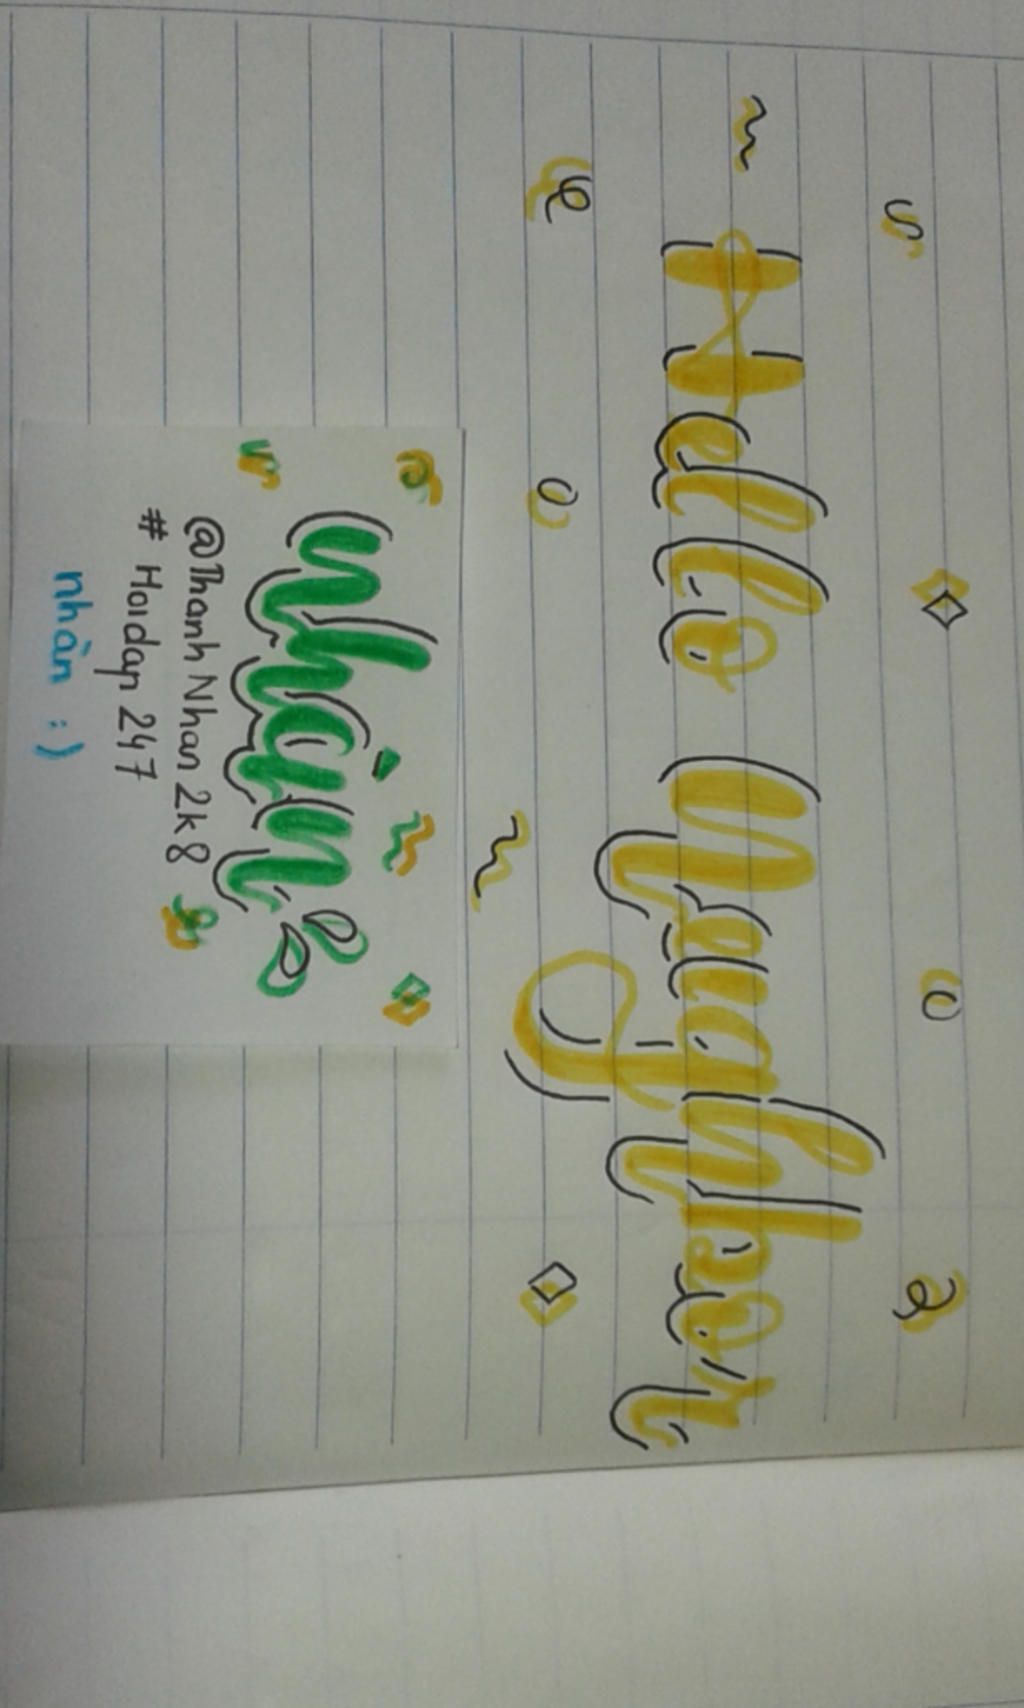 Hello Neighbor
Nhân
@Thanh Nhan 2k8
# Hoidap 247
nhân :)